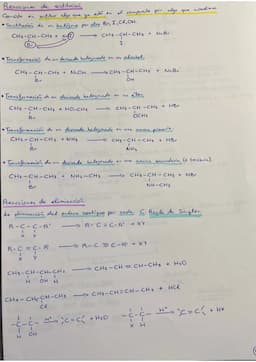 Reacciones de sustitución
Consiste en sustituir algo que ya está en el compuesto por algo que
• Sustitución de un halógeno por otro Br, I, Cl,
CH₃-CH-CH₃ + NaI ⟶ CH₃-CH-CH₃ + NaBr
Br I
• Transformación de un derivado halogenado en un alcohol.
CH₃-CH-CH₃ + NaOH ⟶ CH₃-CH-CH₃ + NaBr
Br OH
• Transformación de un derivado halogenado en un éter.
CH₃-CH-CH₃ + HO-CH₃ ⟶ CH₃-CH-CH₃ + HBr
Br OCH₃
• Transformación de un derivado halogenado en una amina primaria.
CH₃-CH-CH₃ + NH₃ ⟶ CH₃-CH-CH₃ + HBr
Br NH₂
• Transformación de un derivado halogenado en una amina secundaria (o terciaria).
CH₃-CH-CH₃ + NH₂-CH₃ ⟶ CH₃-CH-CH₃ + HBr
Br NH-CH₃
Reacciones de eliminación
La eliminación del
R-C-C-R' ⟶ R-C=C-R' + XY
X Y
R-C=C-R' ⟶ R-C≡C-R' + XY
X Y
CH₃-CH-CH-CH₃ ⟶ CH₃-CH=CH-CH₃ + H₂O
H OH H
CH₃-CH₂-CH-CH₃ ⟶ CH₃-CH=CH-CH₃ + HCl
Cl
-C-C- H⁺⟶ C=C + H₂O -C-C- H⁺⟶ C=C + HX
H OH X H